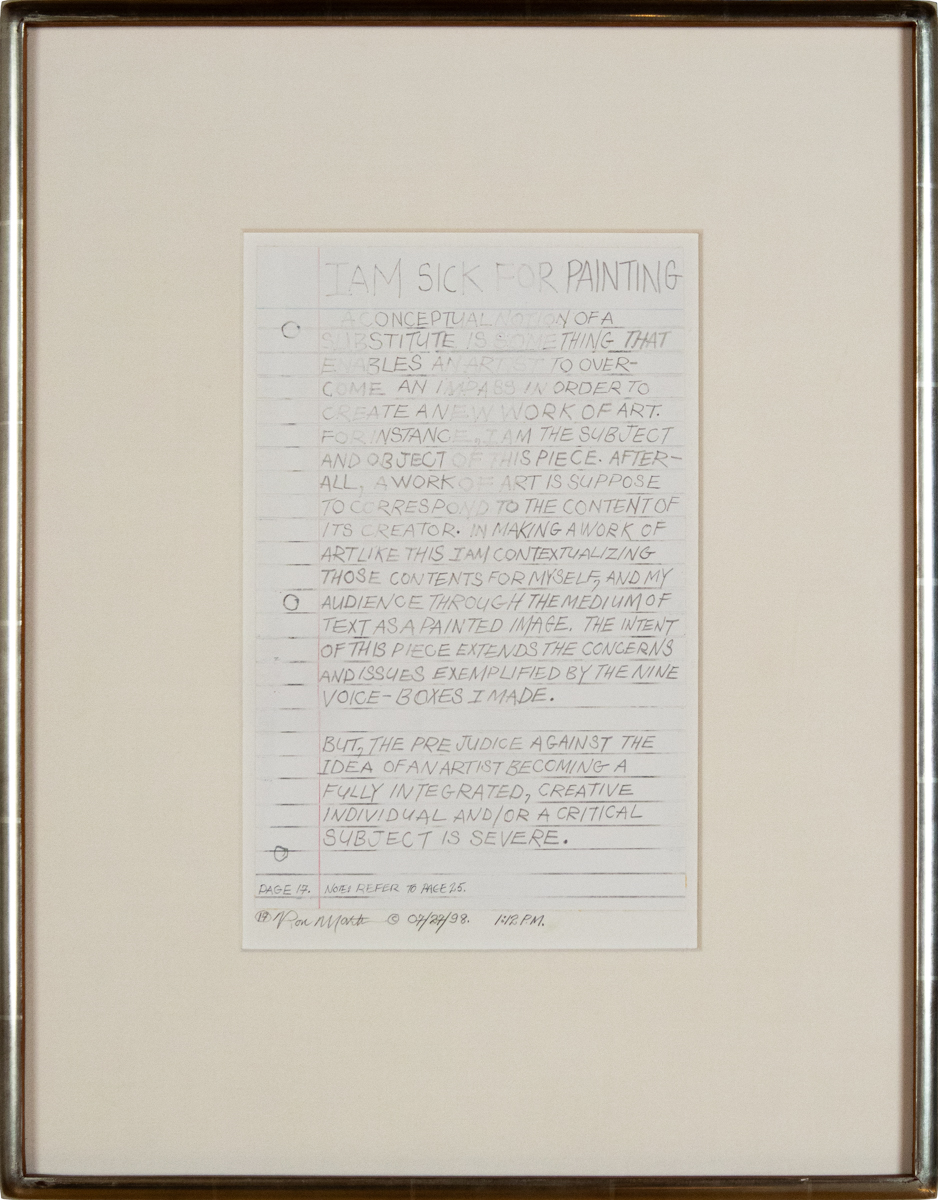 I AM SICK FOR PAINTING
A CONCEPTUAL NOTION OF A
SUBSTITUTE IS SOMETHING THAT
ENABLES AN ARTIST TO OVER-
COME AN IMPASS IN ORDER TO
CREATE A NEW WORK OF ART.
FOR INSTANCE, I AM THE SUBJECT
AND OBJECT OF THIS PIECE. AFTER-
ALL, A WORK OF ART IS SUPPOSE
TO CORRESPOND TO THE CONTENT OF
ITS CREATOR. IN MAKING A WORK OF
ART LIKE THIS I AM CONTEXTUALIZING
THOSE CONTENTS FOR MYSELF, AND MY
AUDIENCE THROUGH THE MEDIUM OF
TEXT AS A PAINTED IMAGE. THE INTENT
OF THIS PIECE EXTENDS THE CONCERNS
AND ISSUES EXEMPLIFIED BY THE NINE
VOICE-BOXES I MADE.
BUT, THE PREJUDICE AGAINST THE
IDEA OF AN ARTIST BECOMING A
FULLY INTEGRATED, CREATIVE
INDIVIDUAL AND/OR A CRITICAL
SUBJECT IS SEVERE.
PAGE 17. NOTES REFER TO PAGE 25.
Ron © 98. P.M.